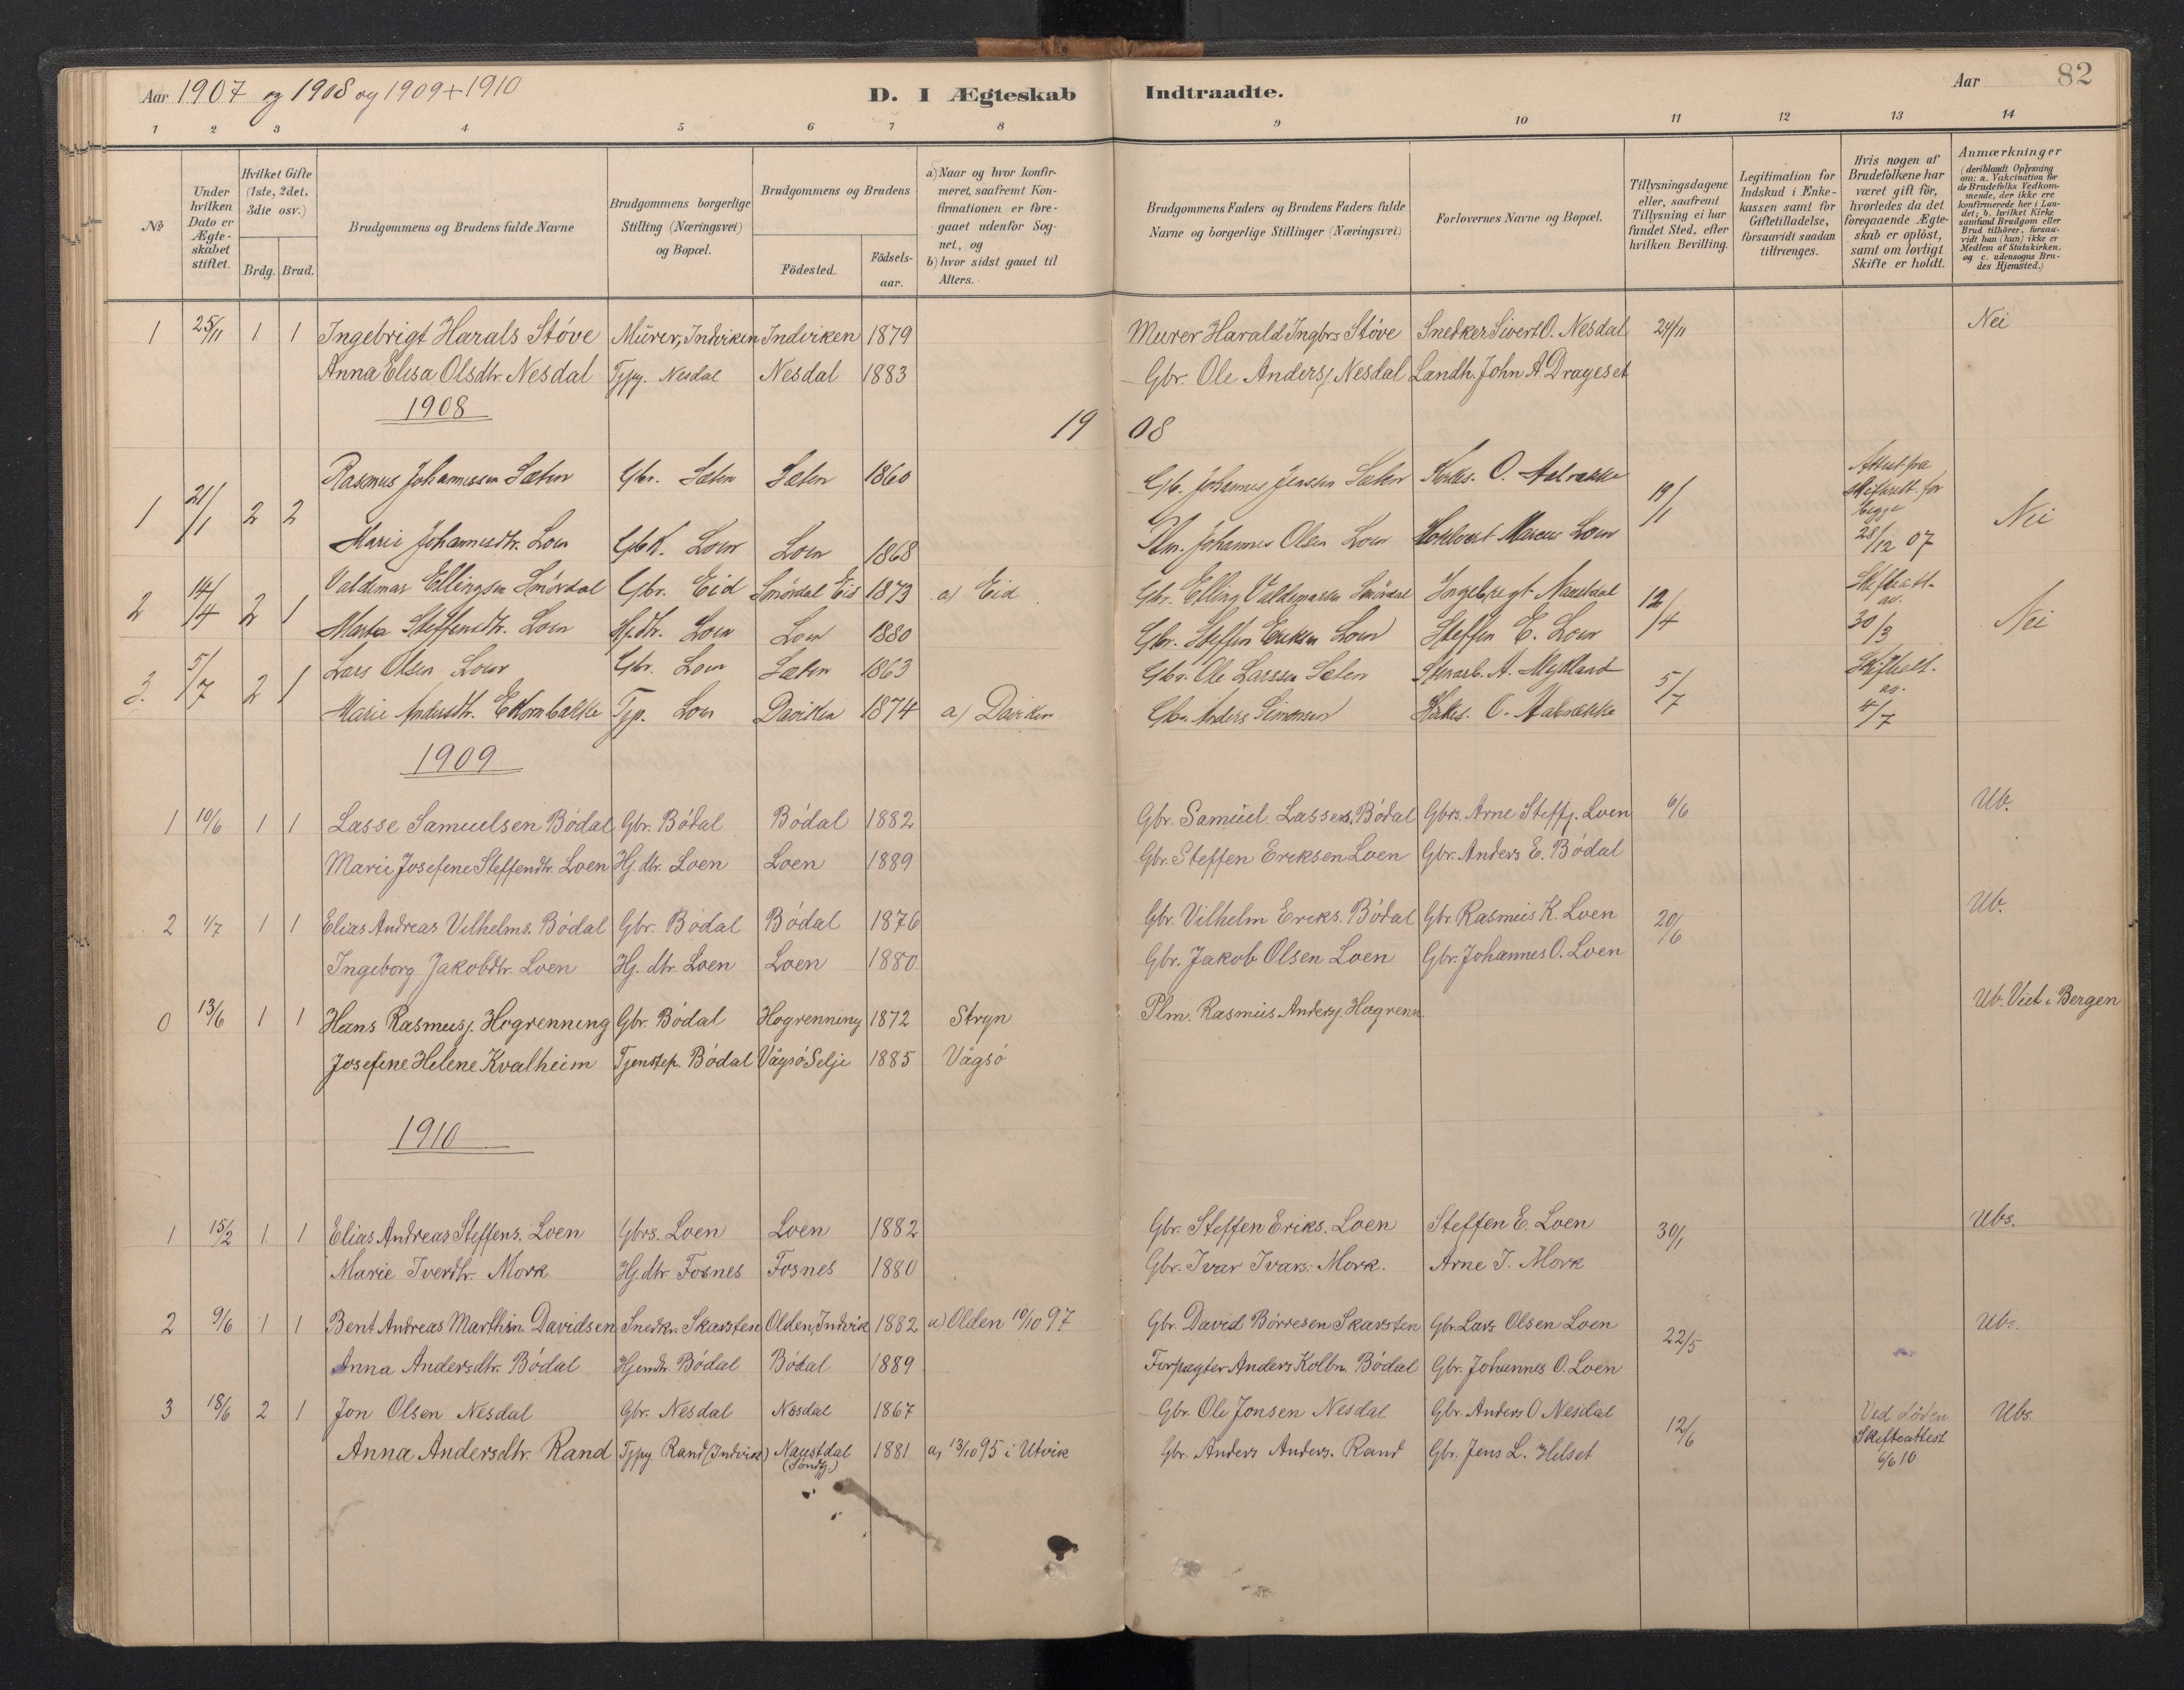 Aar 1907 og 1908 og 1909 + 1910
D. I Ægteskab Indtraadte.
Aar 82
1 2 3 4 5 6 7 8 9 10 11 12 13 14
No
Under hvilken Dato er Ægte-skabet stiftet.
Hvilket Gifte (1ste, 2det, 3die osv.)
Brdg. Brud.
Brudgommens og Brudens fulde Navne
Brudgommens borgerlige Stilling (Næringsvei) og Bopæl.
Brudgommens og Brudens
Födested.
Födsels-aar.
a) Naar og hvor konfir-meret, saafremt Kon-firmationen er fore-gaaet udenfor Sog-net, og
b) hvor sidst gaaet til Alters.
Brudgommens Faders og Brudens Faders fulde Navne og borgerlige Stillinger (Næringsvei)
Forlovernes Navne og Bopæl.
Tillysningsdagene eller, saafremt Tillysning ei har fundet Sted, efter hvilken Bevilling.
Legitimation for Indskud i Enke-kassen samt for Giftetilladelse, forsaavidt saadan tiltrænges.
Hvis nogen af Brudefolkene har været gift för, hvorledes da det foregaaende Ægte-skab er oplöst, samt om lovligt Skifte er holdt.
Anmærkninger
(deriblandt Oplysning om: a. Vakcination for de Brudefolks Vedkom-mende, der ikke ere konfirmerede her i Lan-det; b. hvilket Kirke samfund Brudgom eller Brud tilhörer, forsaa-vidt han (hun) ikke er Medlem af Statskirken. og c. udensogns Bru-des Hjemsted.)
1 25/11 1 1 Ingebrigt Harals Støve Murer, Indviken Indviken 1879 Murer Harald Ingbrs Støve Snedker Sivert O. Nesdal 24/11 Nei
Anna Elisa Olsdtr. Nesdal Tjpg. Nesdal Nesdal 1883 Gbr. Ole Andersj. Nesdal Landh. John A. Drageset
1908
19 08
1 21/1 2 2 Rasmus Johannessen Sæten Gbr. Sæten Sæten 1860 Gb. Johannes Jenssen Sæten Kirkes. O. Aabrække 19/1 Attest fra skifterett. for begge 28/12 07 Nei
Marie Johannesdtr. Loen GbK. Loen Loen 1868 Plm. Johannes Olsen Loen Marcus Loen
2 14/4 2 1 Valdemar Ellingsen Smördal Gbr. Eid Smördal Eid 1873 a) Eid Gbr. Elling Valdemarsen Smördal Ingebrigt Naustdal 12/4 Skifteatt. av. 30/3 Nei
Marta Steffensdtr. Loen Hj.dtr. Loen Loen 1880 Gbr. Steffen Eriksen Loen Steffen E. Loen
3. 5/7 2 1 Lars Olsen Loen Gbr. Loen Sæten 1863 Gbr. Ole Larssen Sæten Stenarb. A. Mykland 5/7 Skifteatt. av. 4/7
Marie Andersdtr. Ekornbakke Tjp. Loen Daviken 1874 a) Daviken Gbr. Anders Simonsen Kirkes. O. Aabrække
1909
1 10/6 1 1 Lasse Samuelsen Bódal Gbr. Bódal Bódal 1882 Gbr. Samuel Lassen. Bódal Gbrs. Arne Steffj. Loen 6/6 Ub.
Marie Josefene Steffendtr. Loen Hj. dtr. Loen Loen 1889 Gbr. Steffen Eriksen Loen Gbr. Anders E. Bódal
2 1/7 1 1 Elias Andreas Vilhelms. Bódal Gbr. Bódal Bódal 1876 Gbr. Vilhelm Eriks. Bódal Gbr. Rasmus K. Loen 20/6 Ub.
Ingeborg Jakobdtr. Loen Hj. dtr. Loen Loen 1880 Gbr. Jakob Olsen Loen Gbr. Johannes O. Loen
0 13/6 1 1 Hans Rasmusj. Hogrenning Gbr. Bódal Hogrenning 1872 Stryn Plm. Rasmus Andersj. Hogrenn. Ub. Viet i Bergen
Josefine Helene Kvalheim Tjenstep. Bódal Vågsó Selje 1885 Vågsó
1910
1 15/2 1 1 Elias Andreas Steffens. Loen Gbrs. Loen Loen 1882 Gbr. Steffen Eriks. Loen Steffen E. Loen 30/1 Ubs.
Marie Iverdtr. Mork Hj.dtr. Fosnes Fosnes 1880 Gbr. Ivar Ivars. Mork. Arne I. Mork
2 9/6 1 1 Bent Andreas Marthin. Davidsen Snedkr. Skarsten Olden, Indvik 1882 a) Olden 10/10 97 Gbr. David Börresen Skarsten Gbr. Lars Olsen Loen 22/5 Ubs.
Anna Andersdtr. Bódal Hjemdtr. Bódal Bódal 1889 Forpagter Anders Kolbn. Bódal Gbr. Johannes O. Loen
3 18/6 2 1 Jon Olsen Nesdal Gbr. Nesdal Nesdal 1867 Gbr. Ole Jonsen Nesdal Gbr. Anders O. Nesdal 12/6 Ved döden Skifteattest 6/6 10 Ubs.
Anna Andersdtr. Rand Tjpg Rand (Indvik) Naustdal (Söndfj.) 1881 a, 13/10 95 i Utvik Gbr. Anders Anders. Rand Gbr. Jens L. Helset